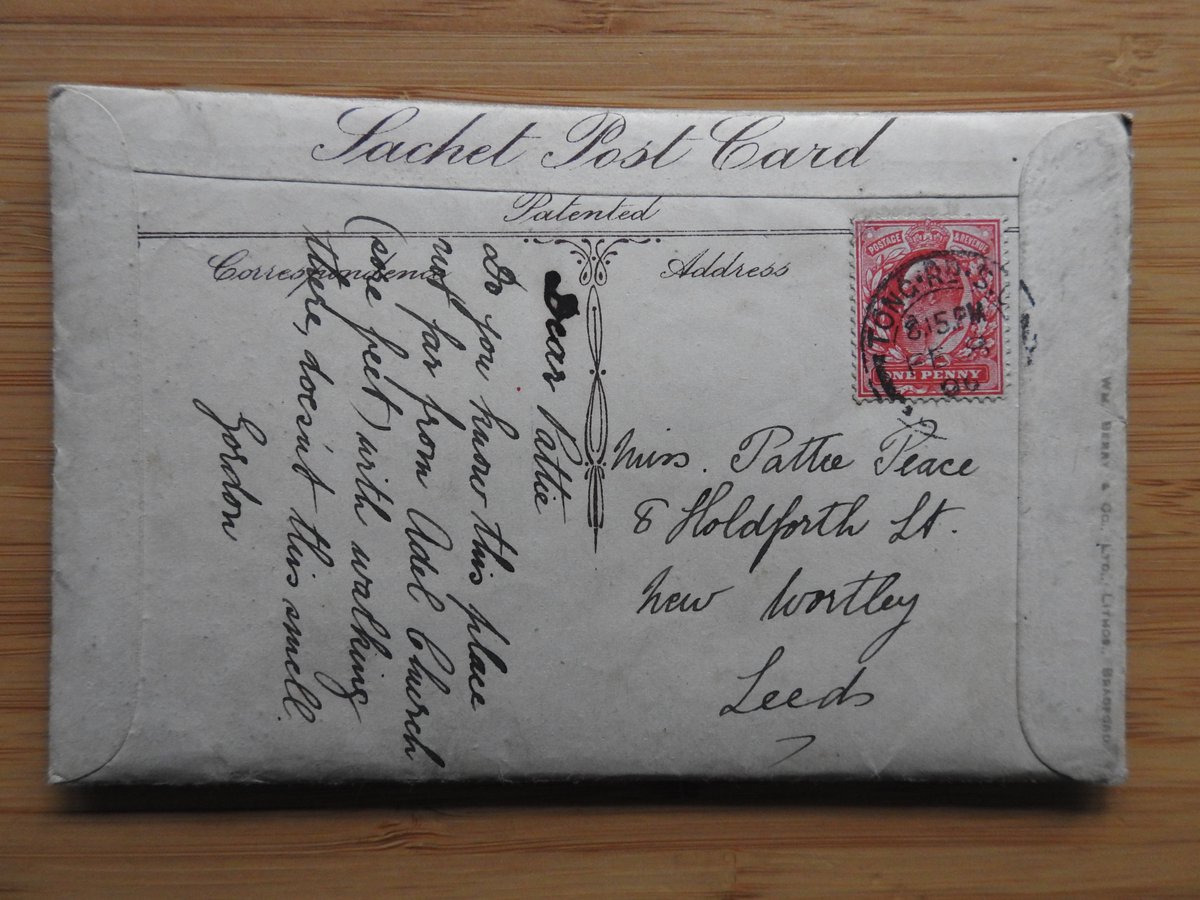 Sachet Post Card
Patented
Correspondence
Address
POSTAGE & REVENUE
ONE PENNY
TONG·RD·
8.15 PM
FE 8
06
Dear Pattie
Do you know this place
not far from Adel Church
(sore feet) with walking
there, doesn't this smell
Gordon
Miss. Pattie Peace
8 Holdforth St.
New Wortley
Leeds
WM BERRY & CO., LTD., LITHOS. BRADFORD